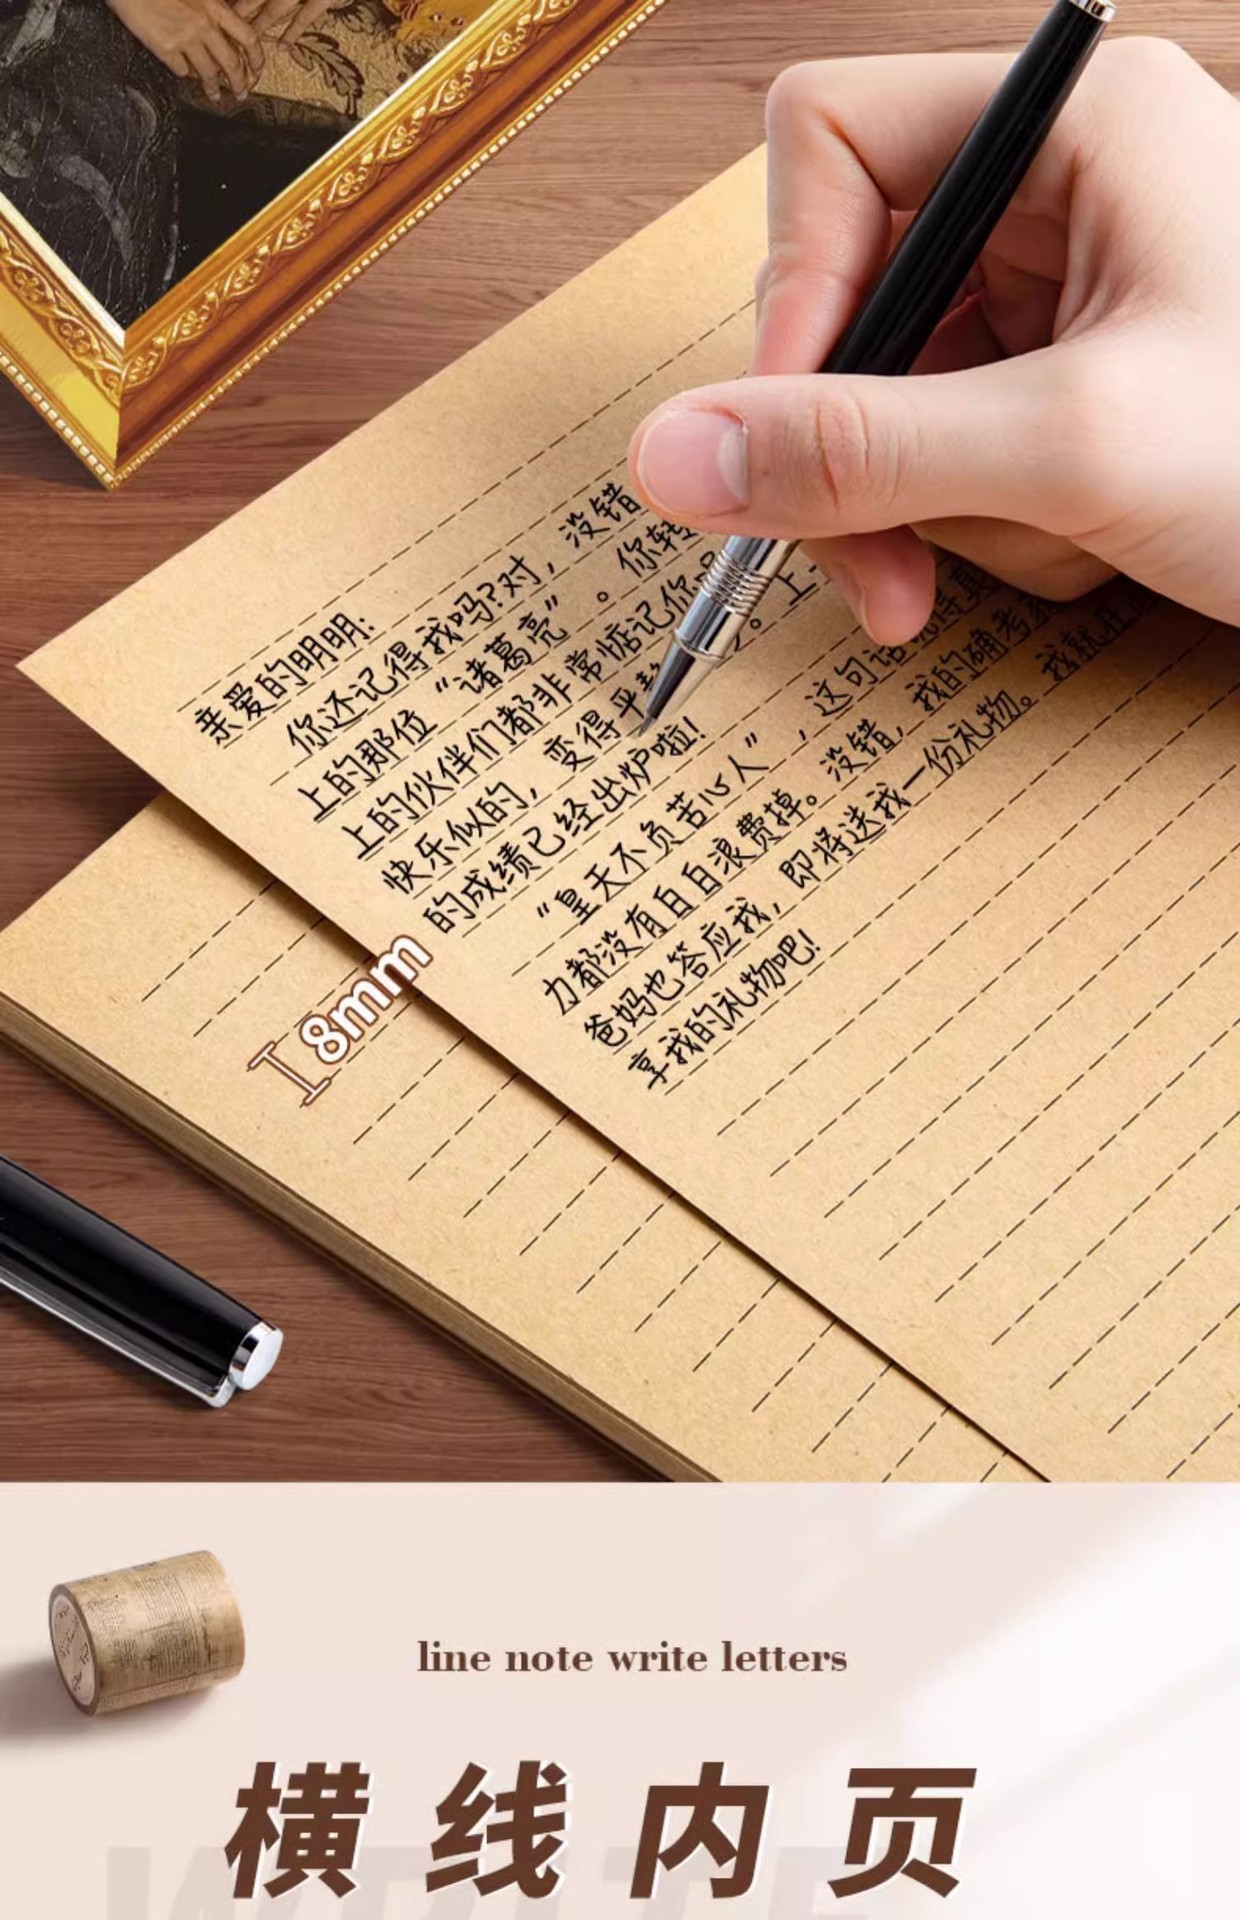 亲爱的明明:
你还记得我吗?对，没错
上的那位“诸葛亮”。你转
上的伙伴们都非常惦记你
快乐似的，变得平 。上
的成绩已经出炉啦!
“皇天不负苦心人”，这句话 得真
力都没有白白浪费掉。没错，我的确考
爸妈也答应我，即将送我一份礼物。我就
享我的礼物吧!
8mm
line note write letters
横线内页
WRITE